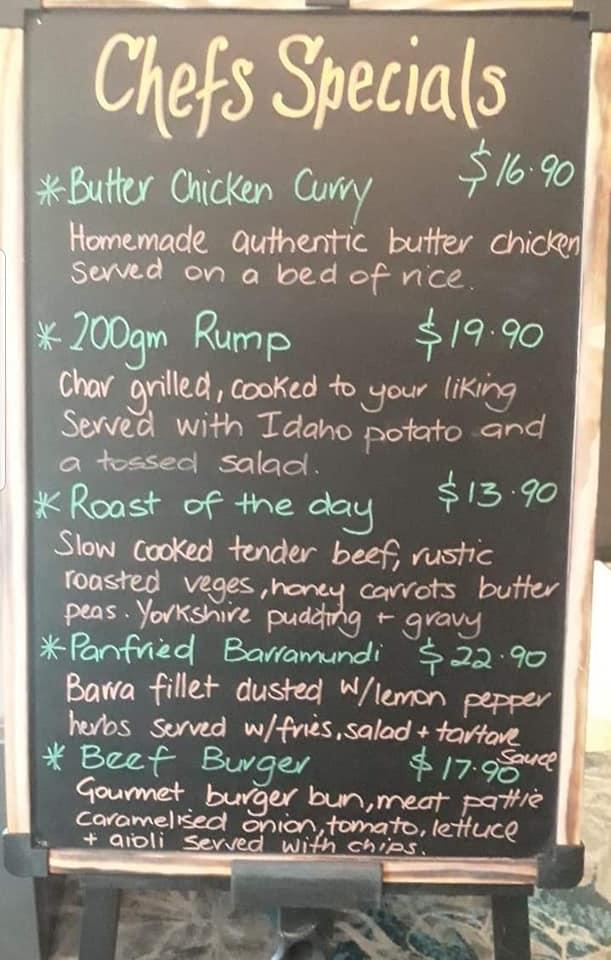 Chefs Specials
* Butter Chicken Curry $16.90
Homemade authentic butter chicken
Served on a bed of rice.
* 200gm Rump $19.90
Char grilled, cooked to your liking
Served with Idaho potato and
a tossed salad.
* Roast of the day $13.90
Slow cooked tender beef, rustic
roasted veges, honey carrots butter
peas. Yorkshire pudding + gravy
* Panfried Barramundi $22.90
Barra fillet dusted w/lemon pepper
herbs served w/fries, salad + tartare
Sauce
* Beef Burger $17.90
Gourmet burger bun, meat pattie
caramelised onion, tomato, lettuce
+ aioli served with chips.